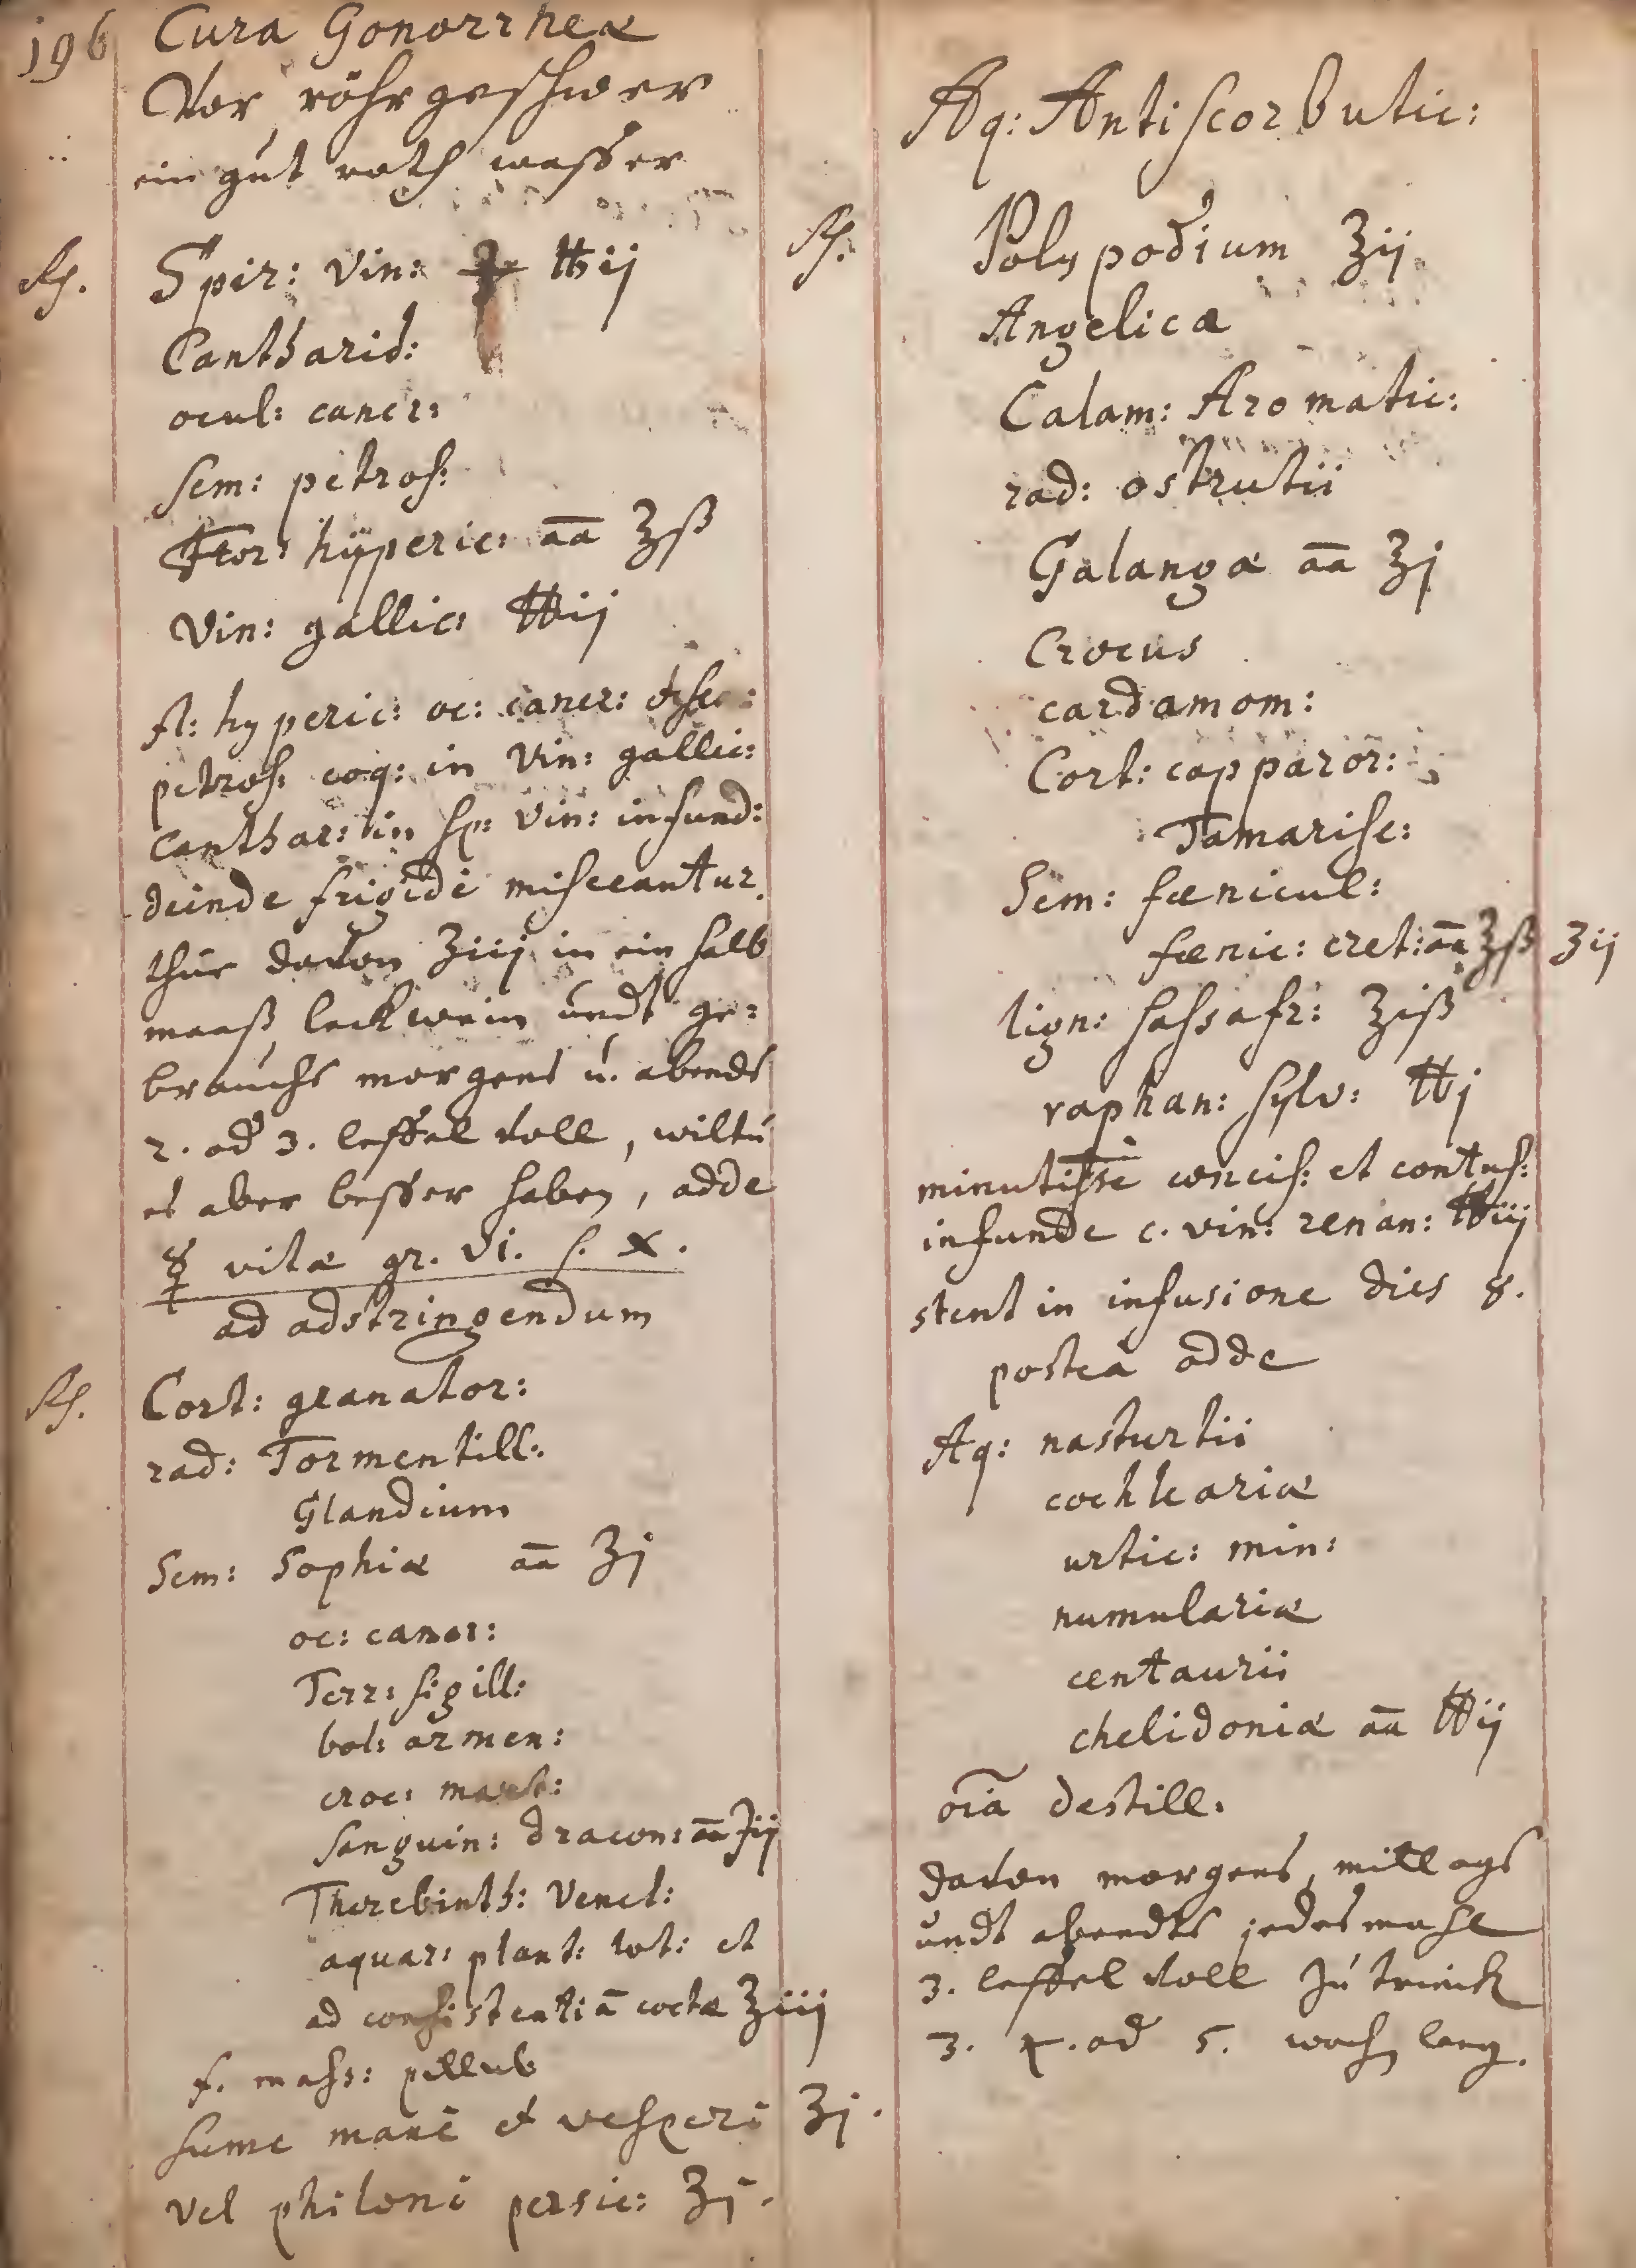 196
Cura Gonorrheæ
Vor röhrgeschwer
ein gut roth wasser
Rp. Spir: vin: ℔ij
Cantharid:
ocul: cancr:
sem: petros:
Flor: hÿperic: aā ʒß
Vin: gallic: ℔ij
fl: hyperic: oc: cancr: et
petros: coq: in vin: gallic:
Canthar: in sp: vin: infund:
deinde frigidè misceantur.
thue davon ʒiij in ein halb
maaß leckwein undt ge:
brauchs morgens u. abends
2. od 3. leffel voll, wiltu
es aber besser haben, adde
☿ vitæ gr. vi. s. x.
ad adstringendum
Rp. Cort: granator:
rad: Tormentill:
Glandium
Sem: Sophiæ aā ʒj
oc: cancr:
Terr: sigill:
bol: armen:
croc: mart:
sanguin: dracon: aā ʒij
Therebinth: Venet:
aquar: plant: lot: et
ad consistentiā coctæ ʒiij
f. mass: pillul
sume manè et vesperi ʒj.
vel philoni persic: ʒj.
Aq: Antiscorbutic:
Rp. Polypodium ʒij
Angelicæ
Calam: Aromatic:
rad: ostrutii
Galangæ aā ʒj
Crocus
cardamom:
Cort: capparor:
Tamarisc:
Sem: fœnicul:
fœnic: cret: aā ʒß ʒij
lign: sassafr: ʒiß
raphan: sylv: ℔j
minutissē concis: et contus:
infunde c. vin: renan: ℔iij
stent in infusione dies 8.
posteà adde
Aq: nasturtii
cochleariæ
urtic: min:
numulariæ
centaurii
chelidoniæ aā ℔ij
oīa destill.
davon morgens, mittags
undt abendts jedesmahl
3. leffel voll zu trinck
3. 4. od 5. woch lang.